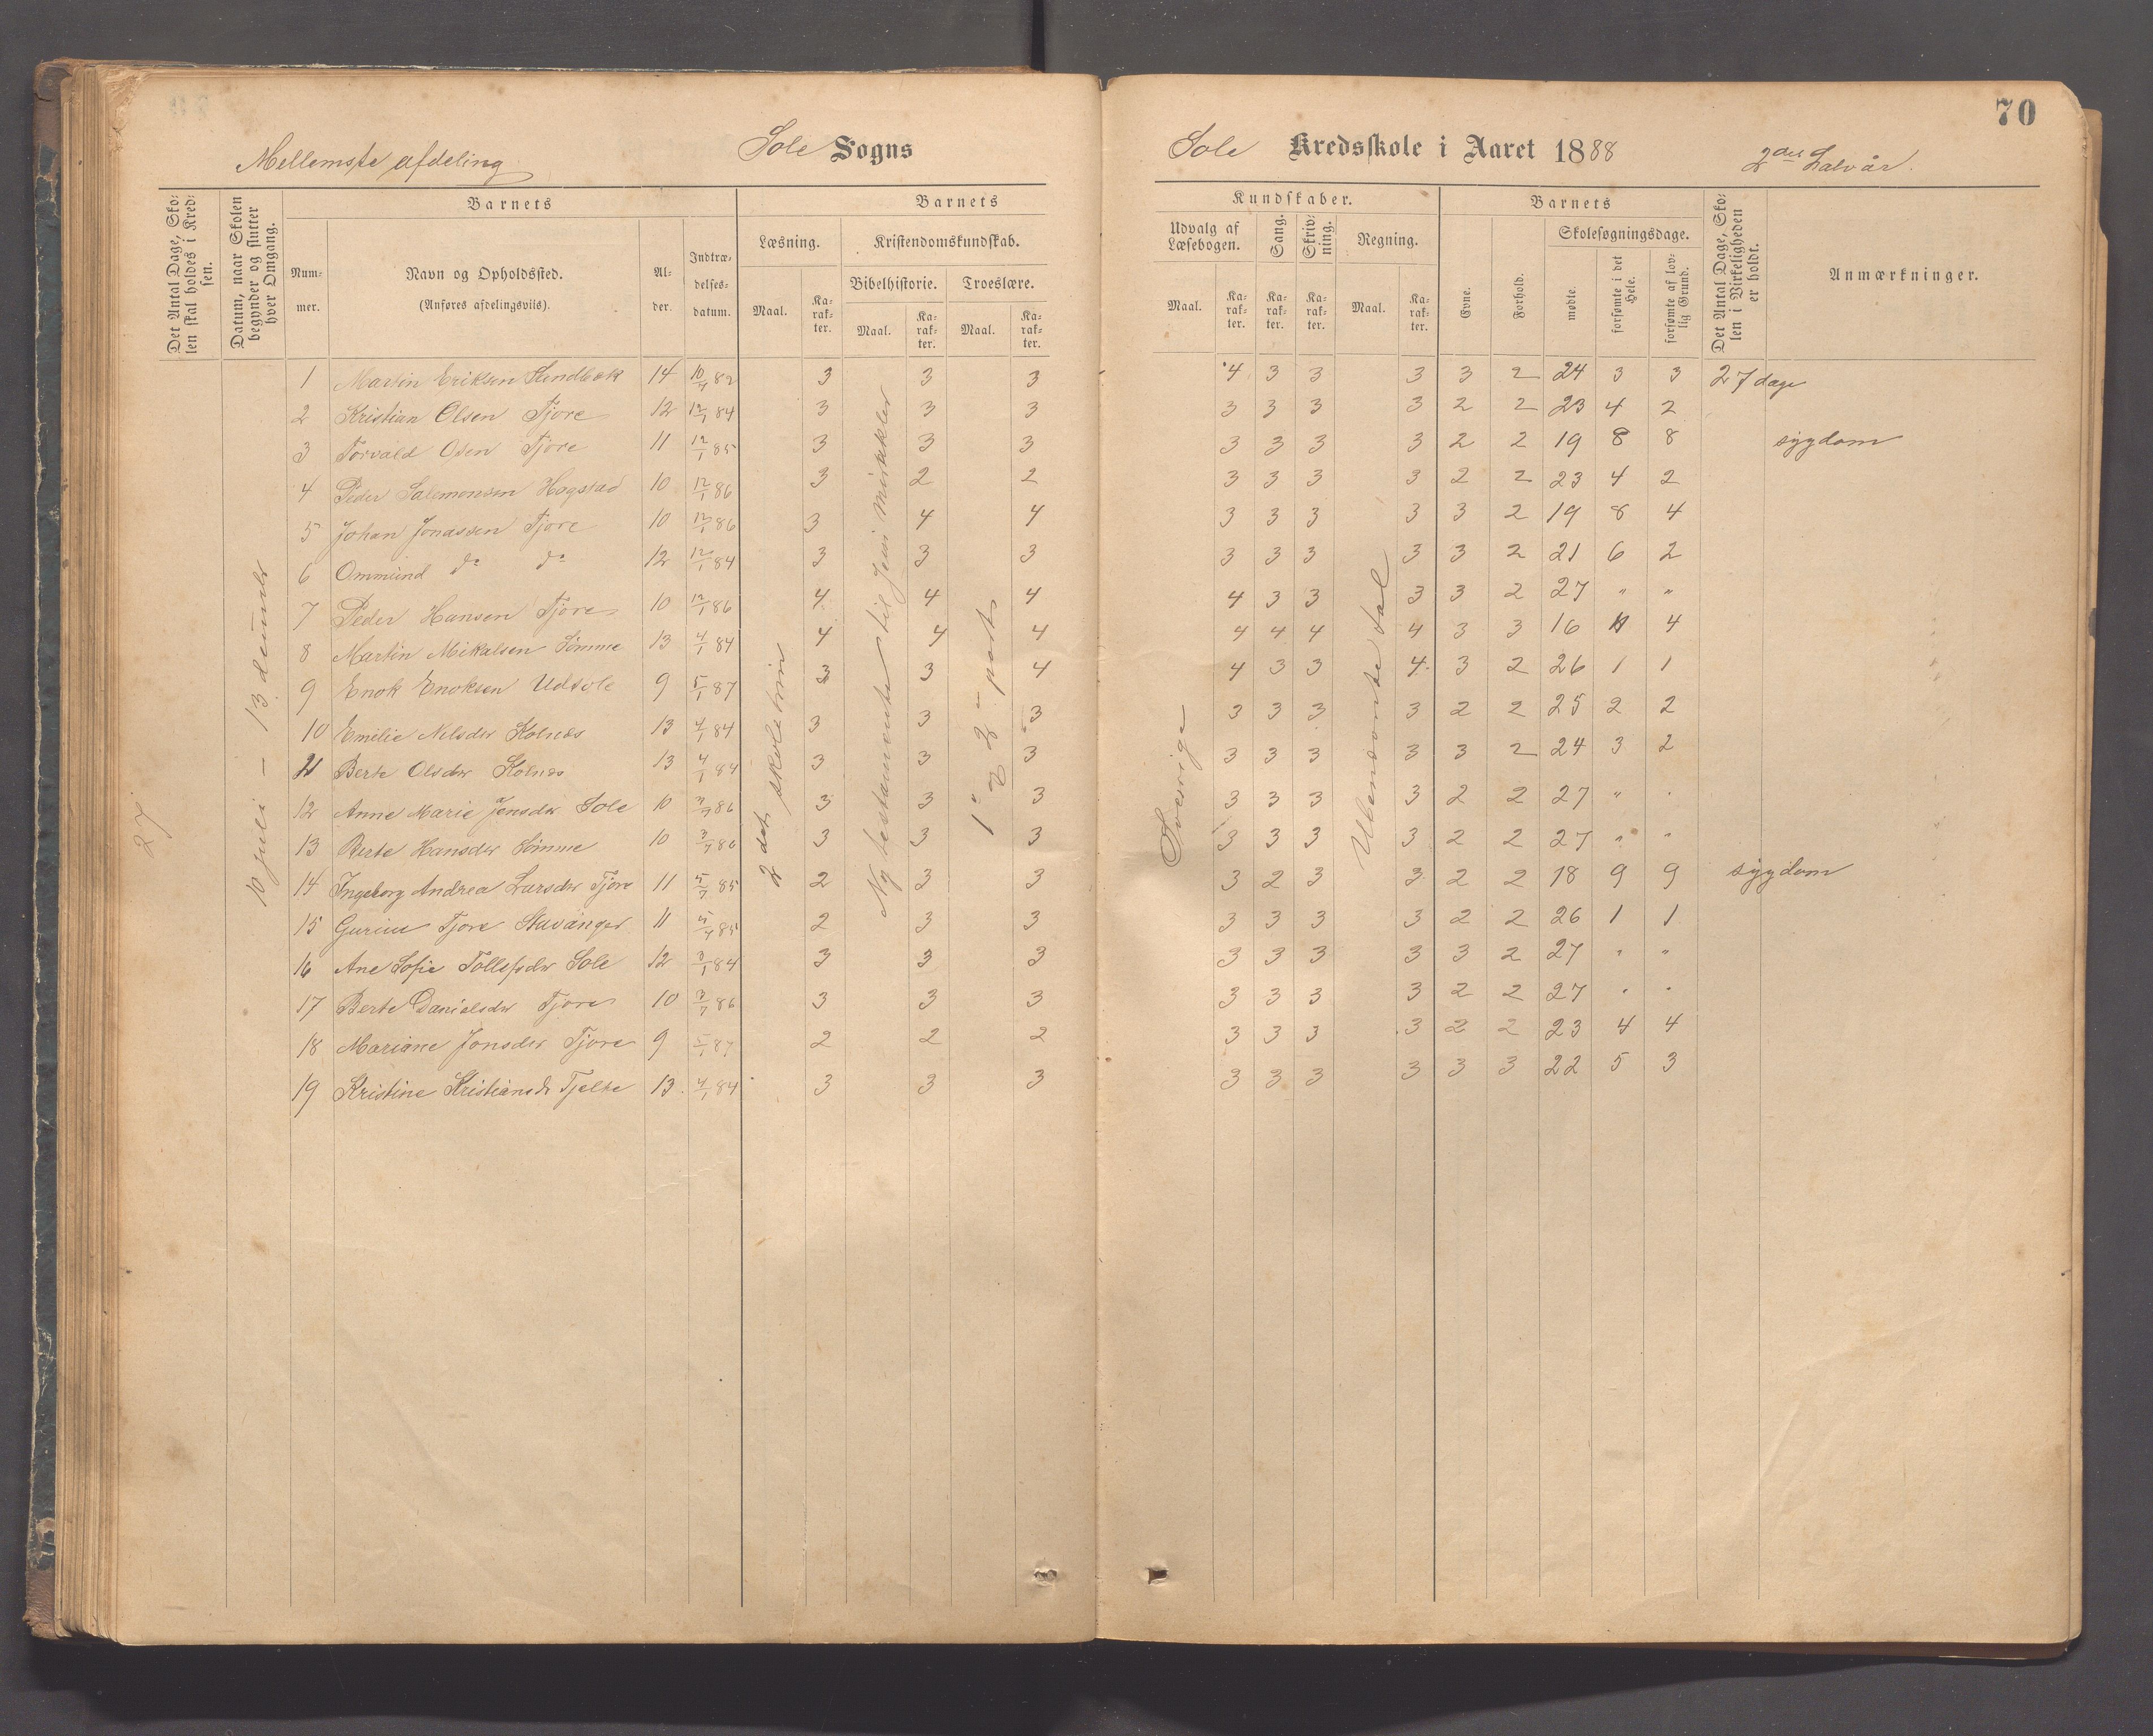 70
Mellemste afdeling Sole Sogns Sole Kredsskole i Aaret 1888 2det Halvår.
Det Antal Dage, Skolen skal holdes i Kredsen.
Datum, naar Skolen begynder og slutter hver Omgang.
Barnets
Nummer.
Navn og Opholdssted.
(Anføres afdelingsviis).
Alder.
Indtrædelses-datum.
Barnets Kundskaber.
Læsning. Kristendomskundskab. Udvalg af Læsebogen. Sang. Skrivning. Regning.
Bibelhistorie. Troeslære.
Maal. Karakter. Maal. Karakter. Maal. Karakter. Maal. Karakter. Karakter. Karakter. Maal. Karakter.
Barnets
Evne. Forhold.
Skolesøgningsdage.
mødte. forsømte i det Hele. forsømte af lovlig Grund.
Det Antal Dage, Skolen i Virkeligheden er holdt.
Anmærkninger.
27
10 juli – 13 decemb
2det skoletrin
Ny testamente til Jesu mirakler
1ste og 2den part
Sverige
Ubenævnte tal
1 Martin Eriksen 14 10/4 82 3 3 3 4 3 3 3 3 2 24 3 3 27 dage
2 Kristian Olsen Tjore 12 12/1 84 3 3 3 3 3 3 3 2 2 23 4 2
3 Torvald Osen Tjore 11 12/1 85 3 3 3 3 3 3 3 2 2 19 8 8 sygdom
4 Peder Salemonsen Hogstad 10 12/1 86 3 2 2 3 3 3 3 2 2 23 4 2
5 Johan Jonassen Tjore 10 12/1 86 3 4 4 3 3 3 3 3 2 19 8 4
6 Ommund do do 12 12/1 84 3 3 3 3 3 3 3 3 2 21 6 2
7 Peder Hansen Tjore 10 12/1 86 4 4 4 4 3 3 3 3 2 27 " "
8 Martin Mikalsen Sømme 13 4/1 84 4 4 4 4 4 4 4 3 3 16 11 4
9 Enok Enoksen Udsole 9 5/1 87 3 3 4 4 3 3 4 3 2 26 1 1
10 Emilie Nilsdr Kolnes 13 4/1 84 3 3 3 3 3 3 3 2 2 25 2 2
11 Berte Olsdr Kolnes 13 4/1 84 3 3 3 3 3 3 3 3 2 24 3 2
12 Anne Marie Jensdr Sole 10 3/7 86 3 3 3 3 3 3 3 2 2 27 " "
13 Berte Hansdr Sømme 10 3/7 86 3 3 3 3 3 3 3 2 2 27 " "
14 Ingeborg Andrea Larsdr Tjore 11 5/7 85 2 3 3 3 2 3 3 2 2 18 9 9 sygdom
15 Gurine Tjore Stavanger 11 5/7 85 2 3 3 3 3 3 3 2 2 26 1 1
16 Ane Sofie Tollefsdr Sole 12 3/1 84 3 3 3 3 3 3 3 3 2 27 " "
17 Berte Danielsdr Tjore 10 3/7 86 3 3 3 3 3 3 3 2 2 27 " "
18 Mariane Jonsdr Tjore 9 5/1 87 2 2 2 3 3 3 3 2 2 23 4 4
19 Kristine Kristiansdr Tjelte 13 4/1 84 3 3 3 3 3 3 3 3 3 22 5 3